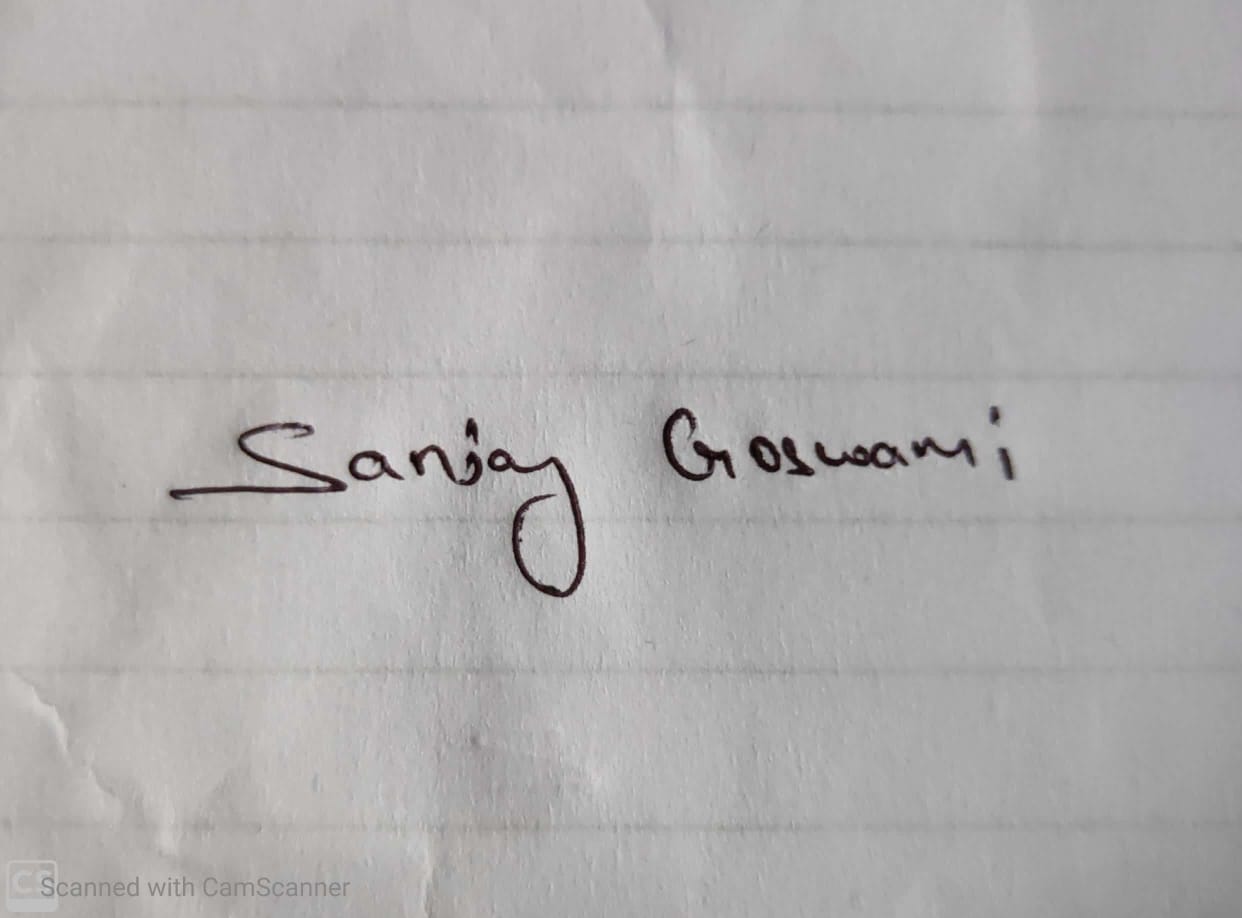 Sanjay Goswami
CS Scanned with CamScanner